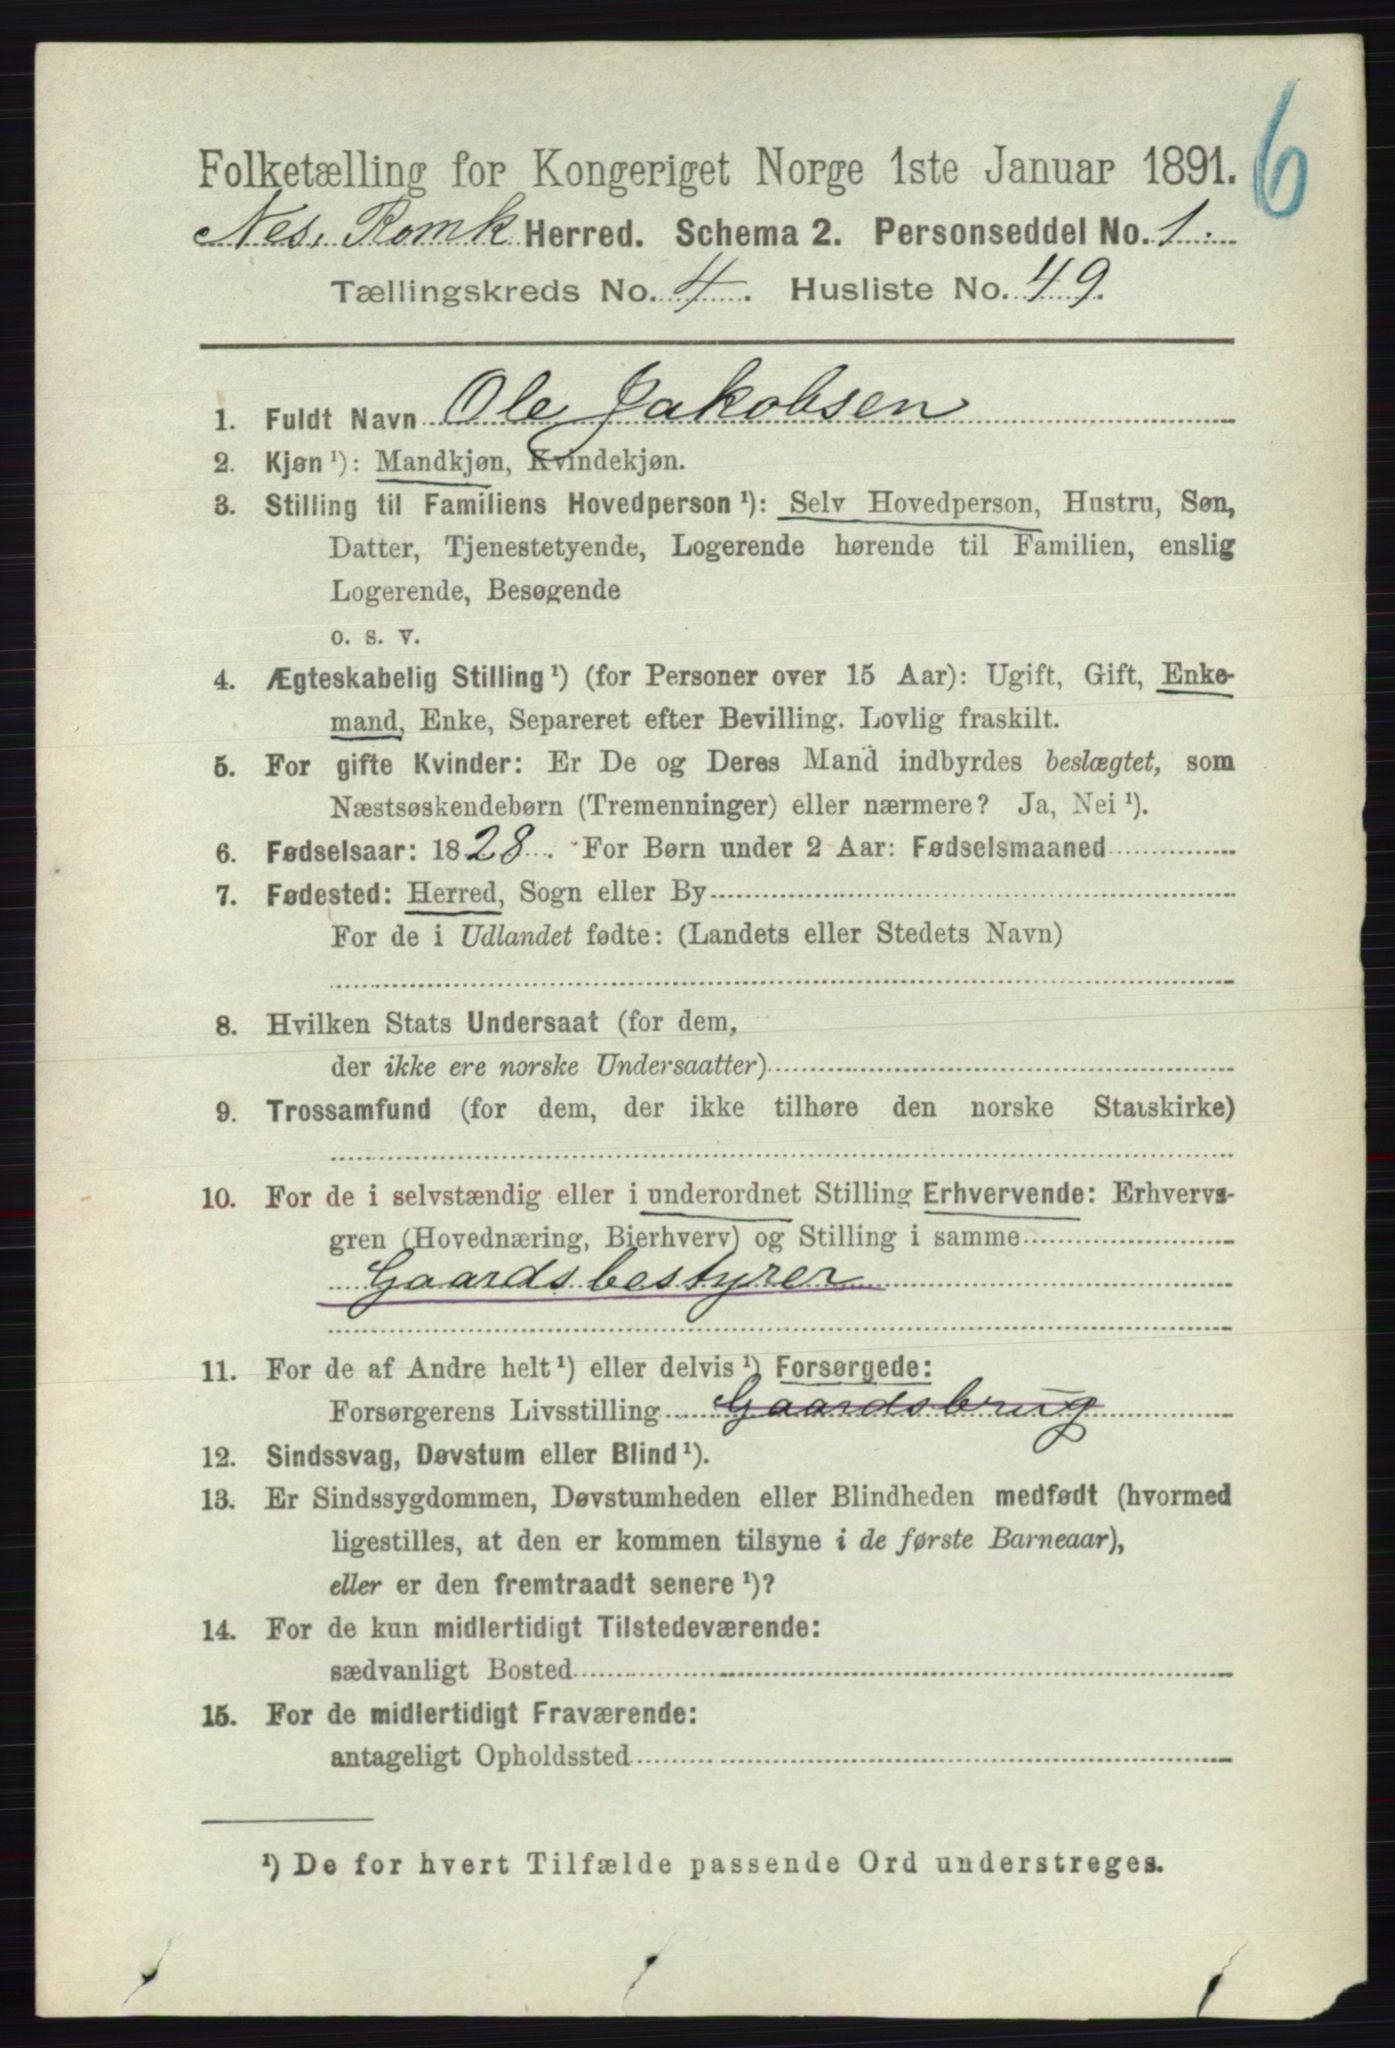 6
Folketælling for Kongeriget Norge 1ste Januar 1891.
Nes, Romk Herred. Schema 2. Personseddel No. 1.
Tællingskreds No. 4. Husliste No. 49.
1. Fuldt Navn Ole Jakobsen
2. Kjøn ¹): Mandkjøn, Kvindekjøn.
3. Stilling til Familiens Hovedperson ¹): Selv Hovedperson, Hustru, Søn,
Datter, Tjenestetyende, Logerende hørende til Familien, enslig
Logerende, Besøgende
o. s. v.
4. Ægteskabelig Stilling ¹) (for Personer over 15 Aar): Ugift, Gift, Enke-
mand, Enke, Separeret efter Bevilling. Lovlig fraskilt.
5. For gifte Kvinder: Er De og Deres Mand indbyrdes beslægtet, som
Næstsøskendebørn (Tremenninger) eller nærmere? Ja, Nei ¹).
6. Fødselsaar: 1828. For Børn under 2 Aar: Fødselsmaaned
7. Fødested: Herred, Sogn eller By
For de i Udlandet fødte: (Landets eller Stedets Navn)
8. Hvilken Stats Undersaat (for dem,
der ikke ere norske Undersaatter)
9. Trossamfund (for dem, der ikke tilhøre den norske Statskirke)
10. For de i selvstændig eller i underordnet Stilling Erhvervende: Erhvervs-
gren (Hovednæring, Bierhverv) og Stilling i samme
Gaardsbestyrer
11. For de af Andre helt ¹) eller delvis ¹) Forsørgede:
Forsørgerens Livsstilling Gaardsbrug
12. Sindssvag, Døvstum eller Blind ¹).
13. Er Sindssygdommen, Døvstumheden eller Blindheden medfødt (hvormed
ligestilles, at den er kommen tilsyne i de første Barneaar),
eller er den fremtraadt senere ¹)?
14. For de kun midlertidigt Tilstedeværende:
sædvanligt Bosted
15. For de midlertidigt Fraværende:
antageligt Opholdssted
¹) De for hvert Tilfælde passende Ord understreges.